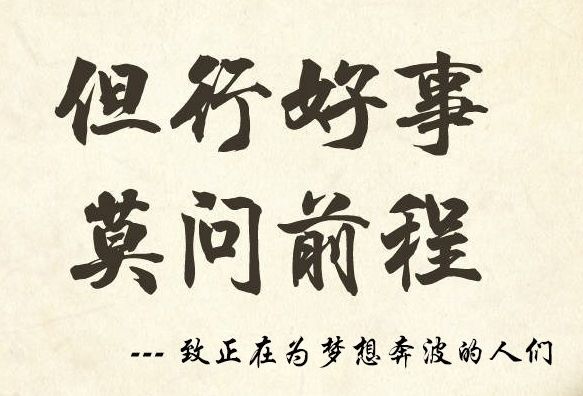 但行好事
莫问前程
--- 致正在为梦想奔波的人们